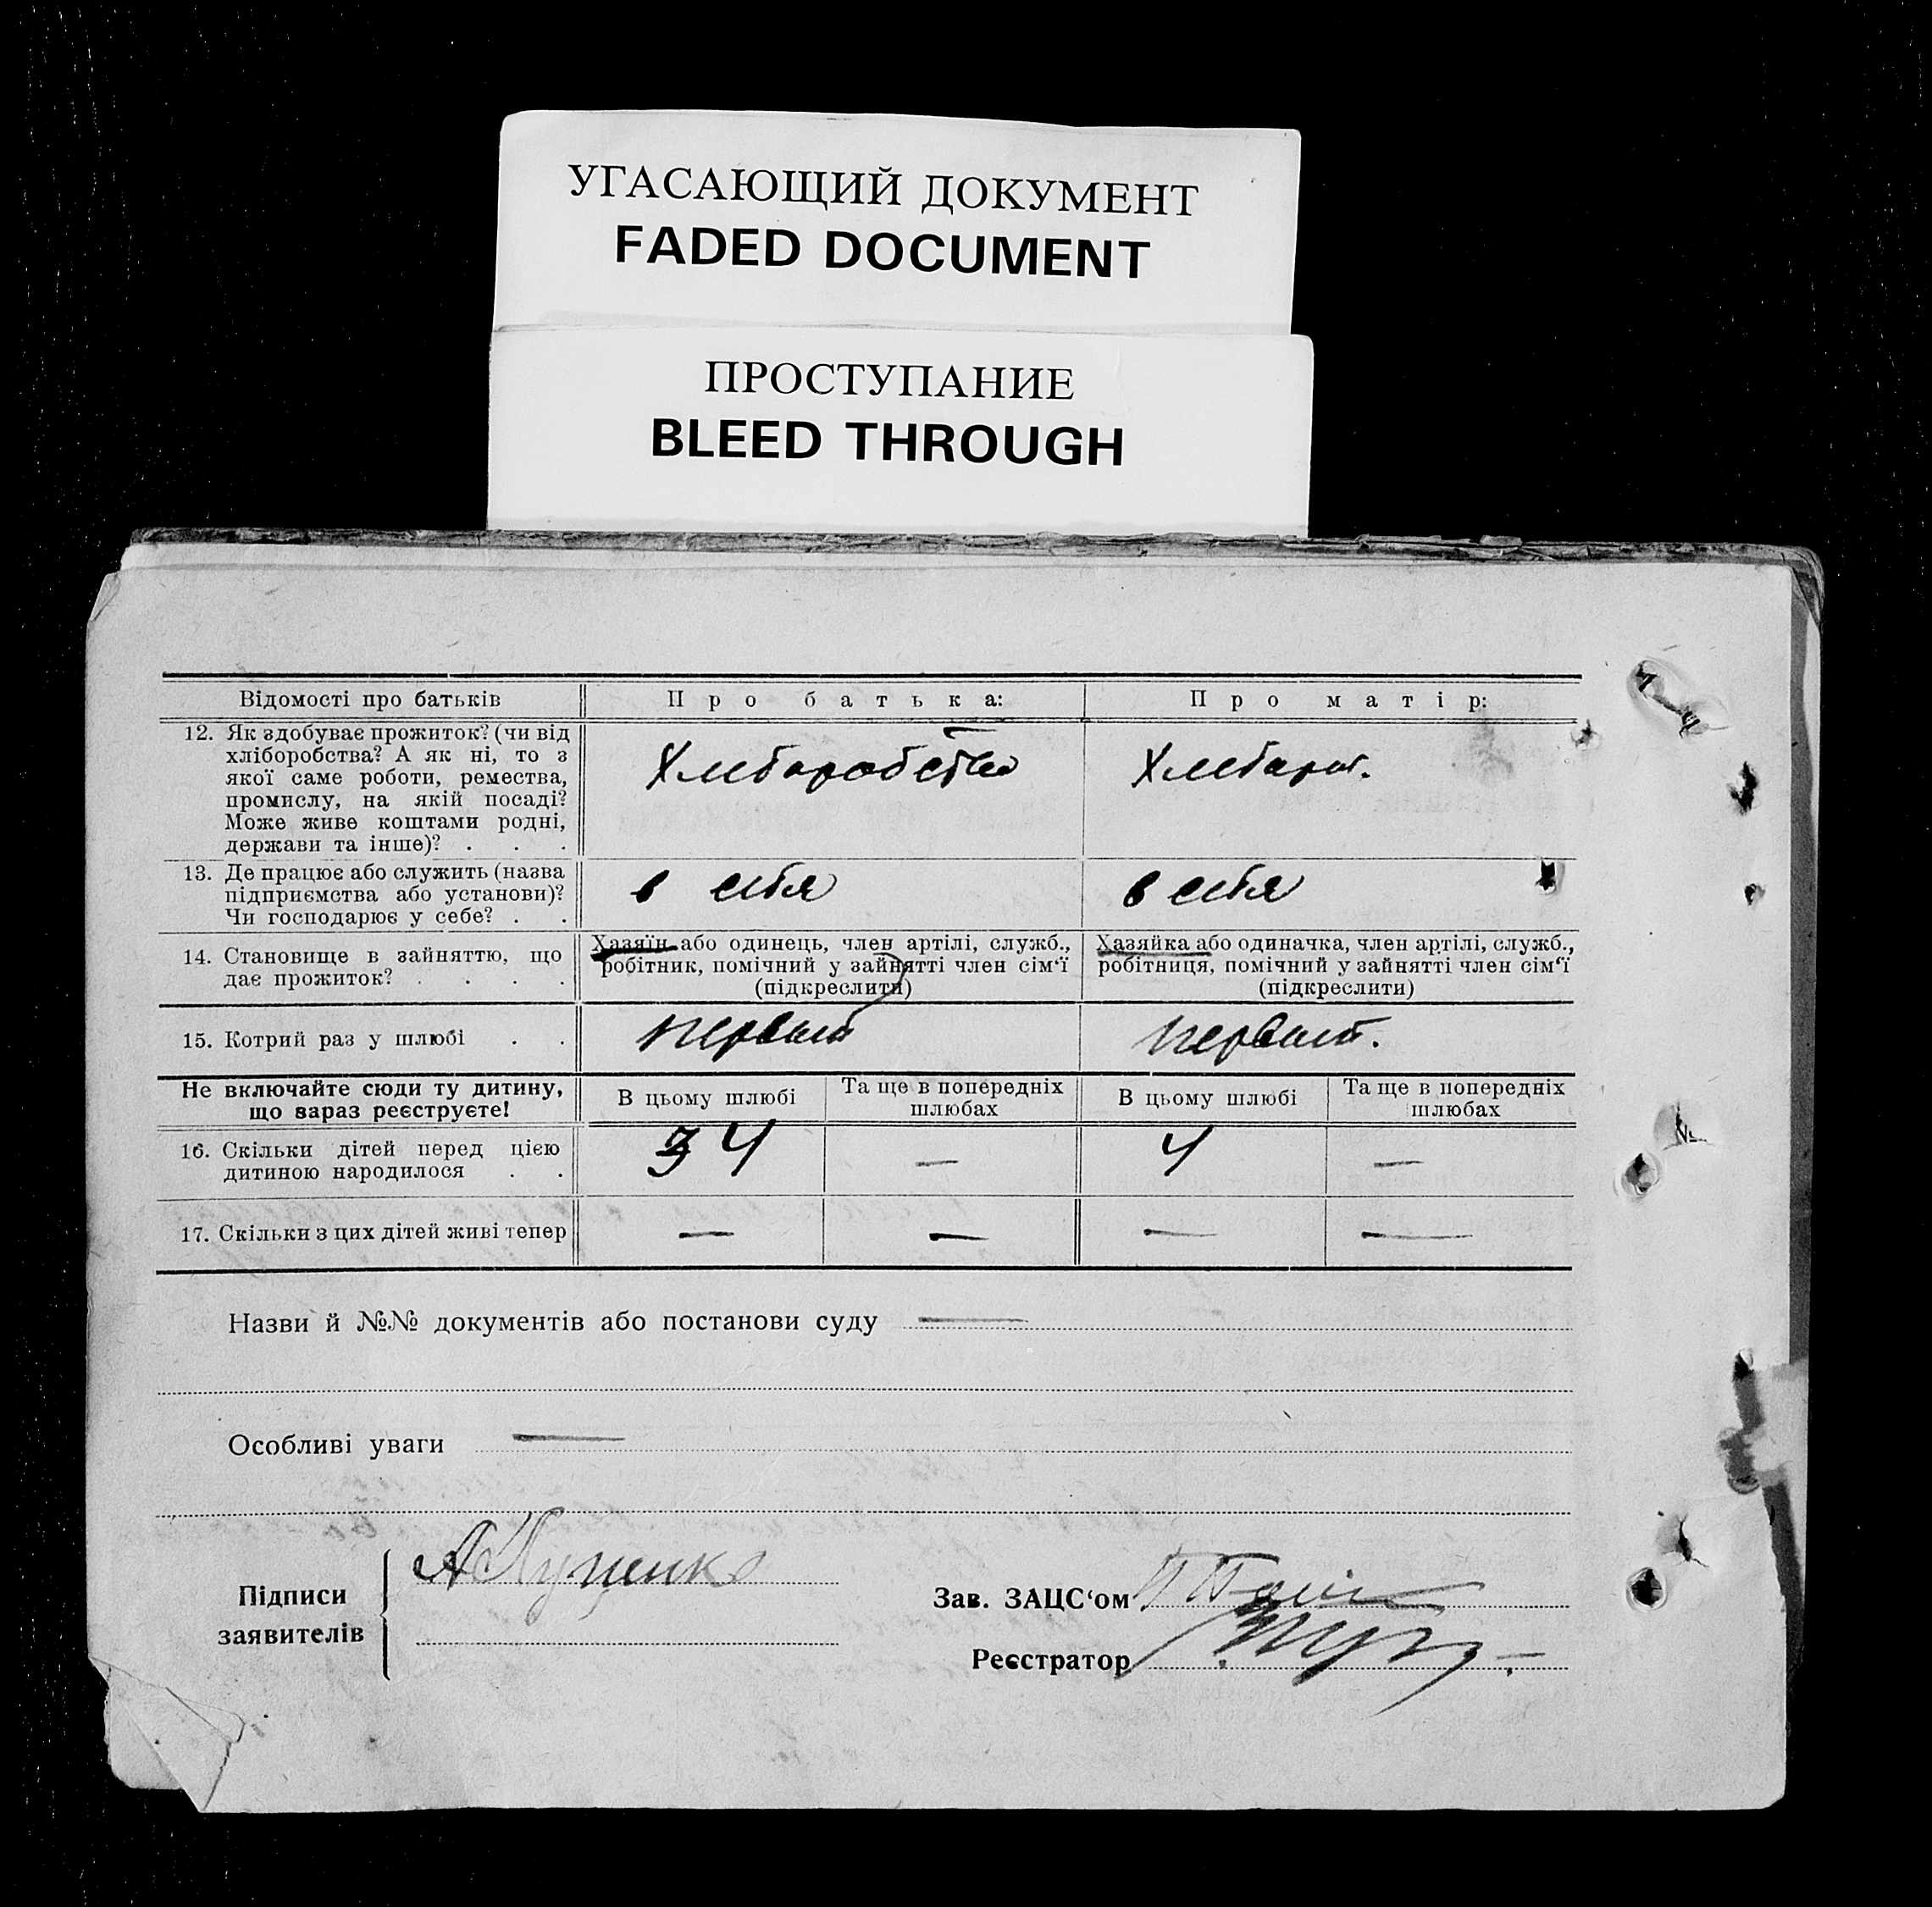 УГАСАЮЩИЙ ДОКУМЕНТ
FADED DOCUMENT
ПРОСТУПАНИЕ
BLEED THROUGH
Відомості про батьків
Про батька:
Про матір:
12. Як здобуває прожиток? (чи від
хліборобства? А як ні, то з
якої саме роботи, ремества,
промислу, на якій посаді?
Може живе коштами родні,
держави та інше)? . . .
Хлеборобство
Хлебороб.
13. Де працює або служить (назва
підприємства або установи)?
Чи господарює у себе? . .
в себя
в себя
14. Становище в зайняттю, що
дає прожиток? . . . .
Хазяїн або одинець, член артілі, служб.,
робітник, помічний у зайнятті член сім‘ї
(підкреслити)
Хазяйка або одиначка, член артілі, служб.,
робітниця, помічний у зайнятті член сім‘ї
(підкреслити)
15. Котрий раз у шлюбі . .
первый
первый.
Не включайте сюди ту дитину,
що зараз реєструєте!
В цьому шлюбі
Та ще в попередніх
шлюбах
В цьому шлюбі
Та ще в попередніх
шлюбах
16. Скільки дітей перед цією
дитиною народилося . .
3 4
—
4
—
17. Скільки з цих дітей живі тепер
—
—
—
—
Назви й №№ документів або постанови суду —
Особливі уваги —
Підписи
заявителів
А Луценко
Зав. ЗАЦС‘ом
Реєстратор